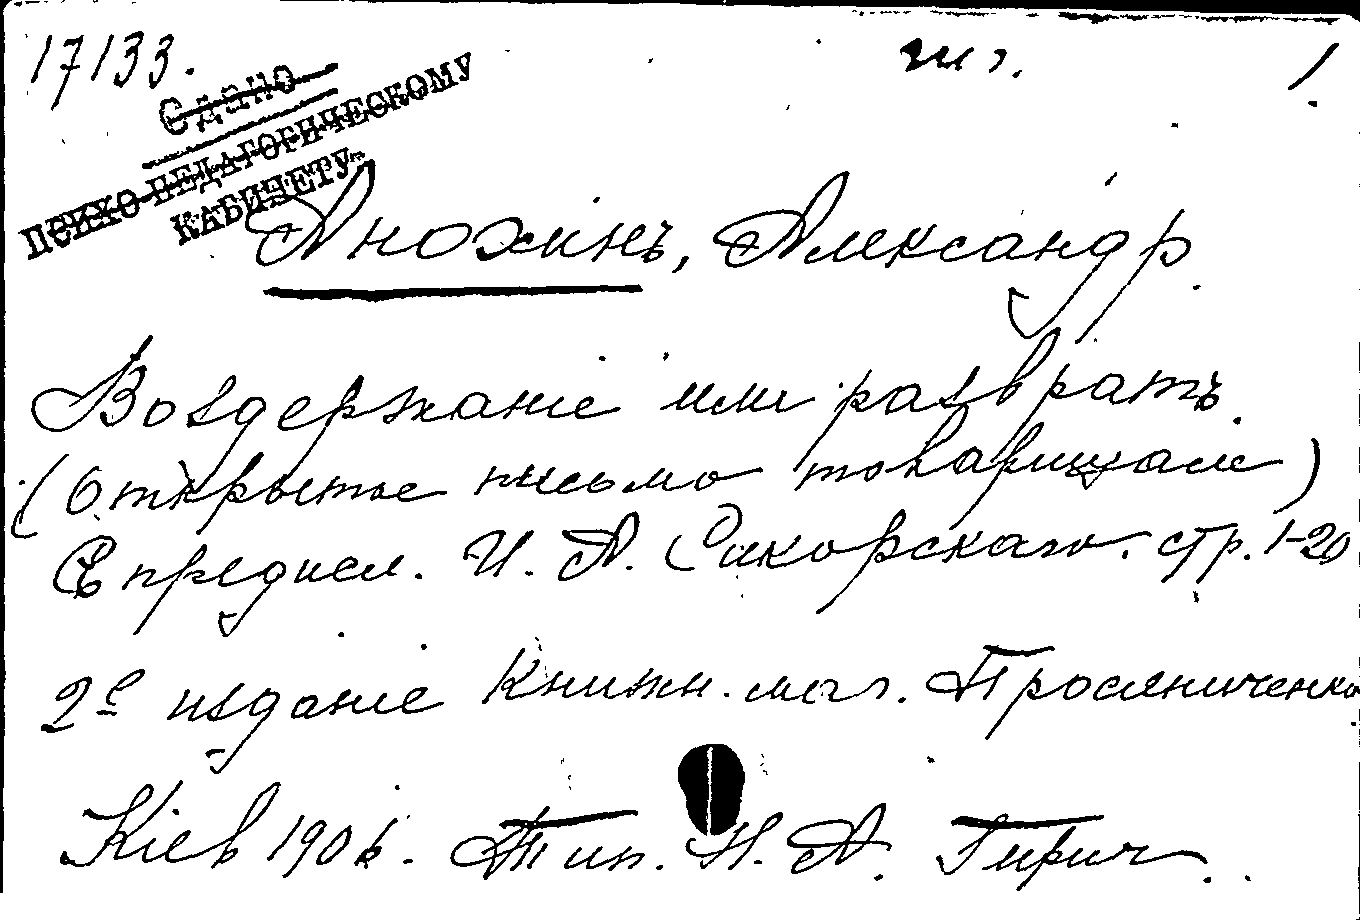 17133. шг. 1
Сдано
ПСИХО-ПЕДАГОГИЧЕСКОМУ
КАБИНЕТУ
Анохинъ, Александр.
Воздержаніе или развратъ.
(Открытое письмо товарищам)
С предисл. И. А. Сикорскаго. стр. 1-20
2е изданіе Книжн. маг. Просяниченко
Кіев 1906. Тип. Н. А. Гирич.